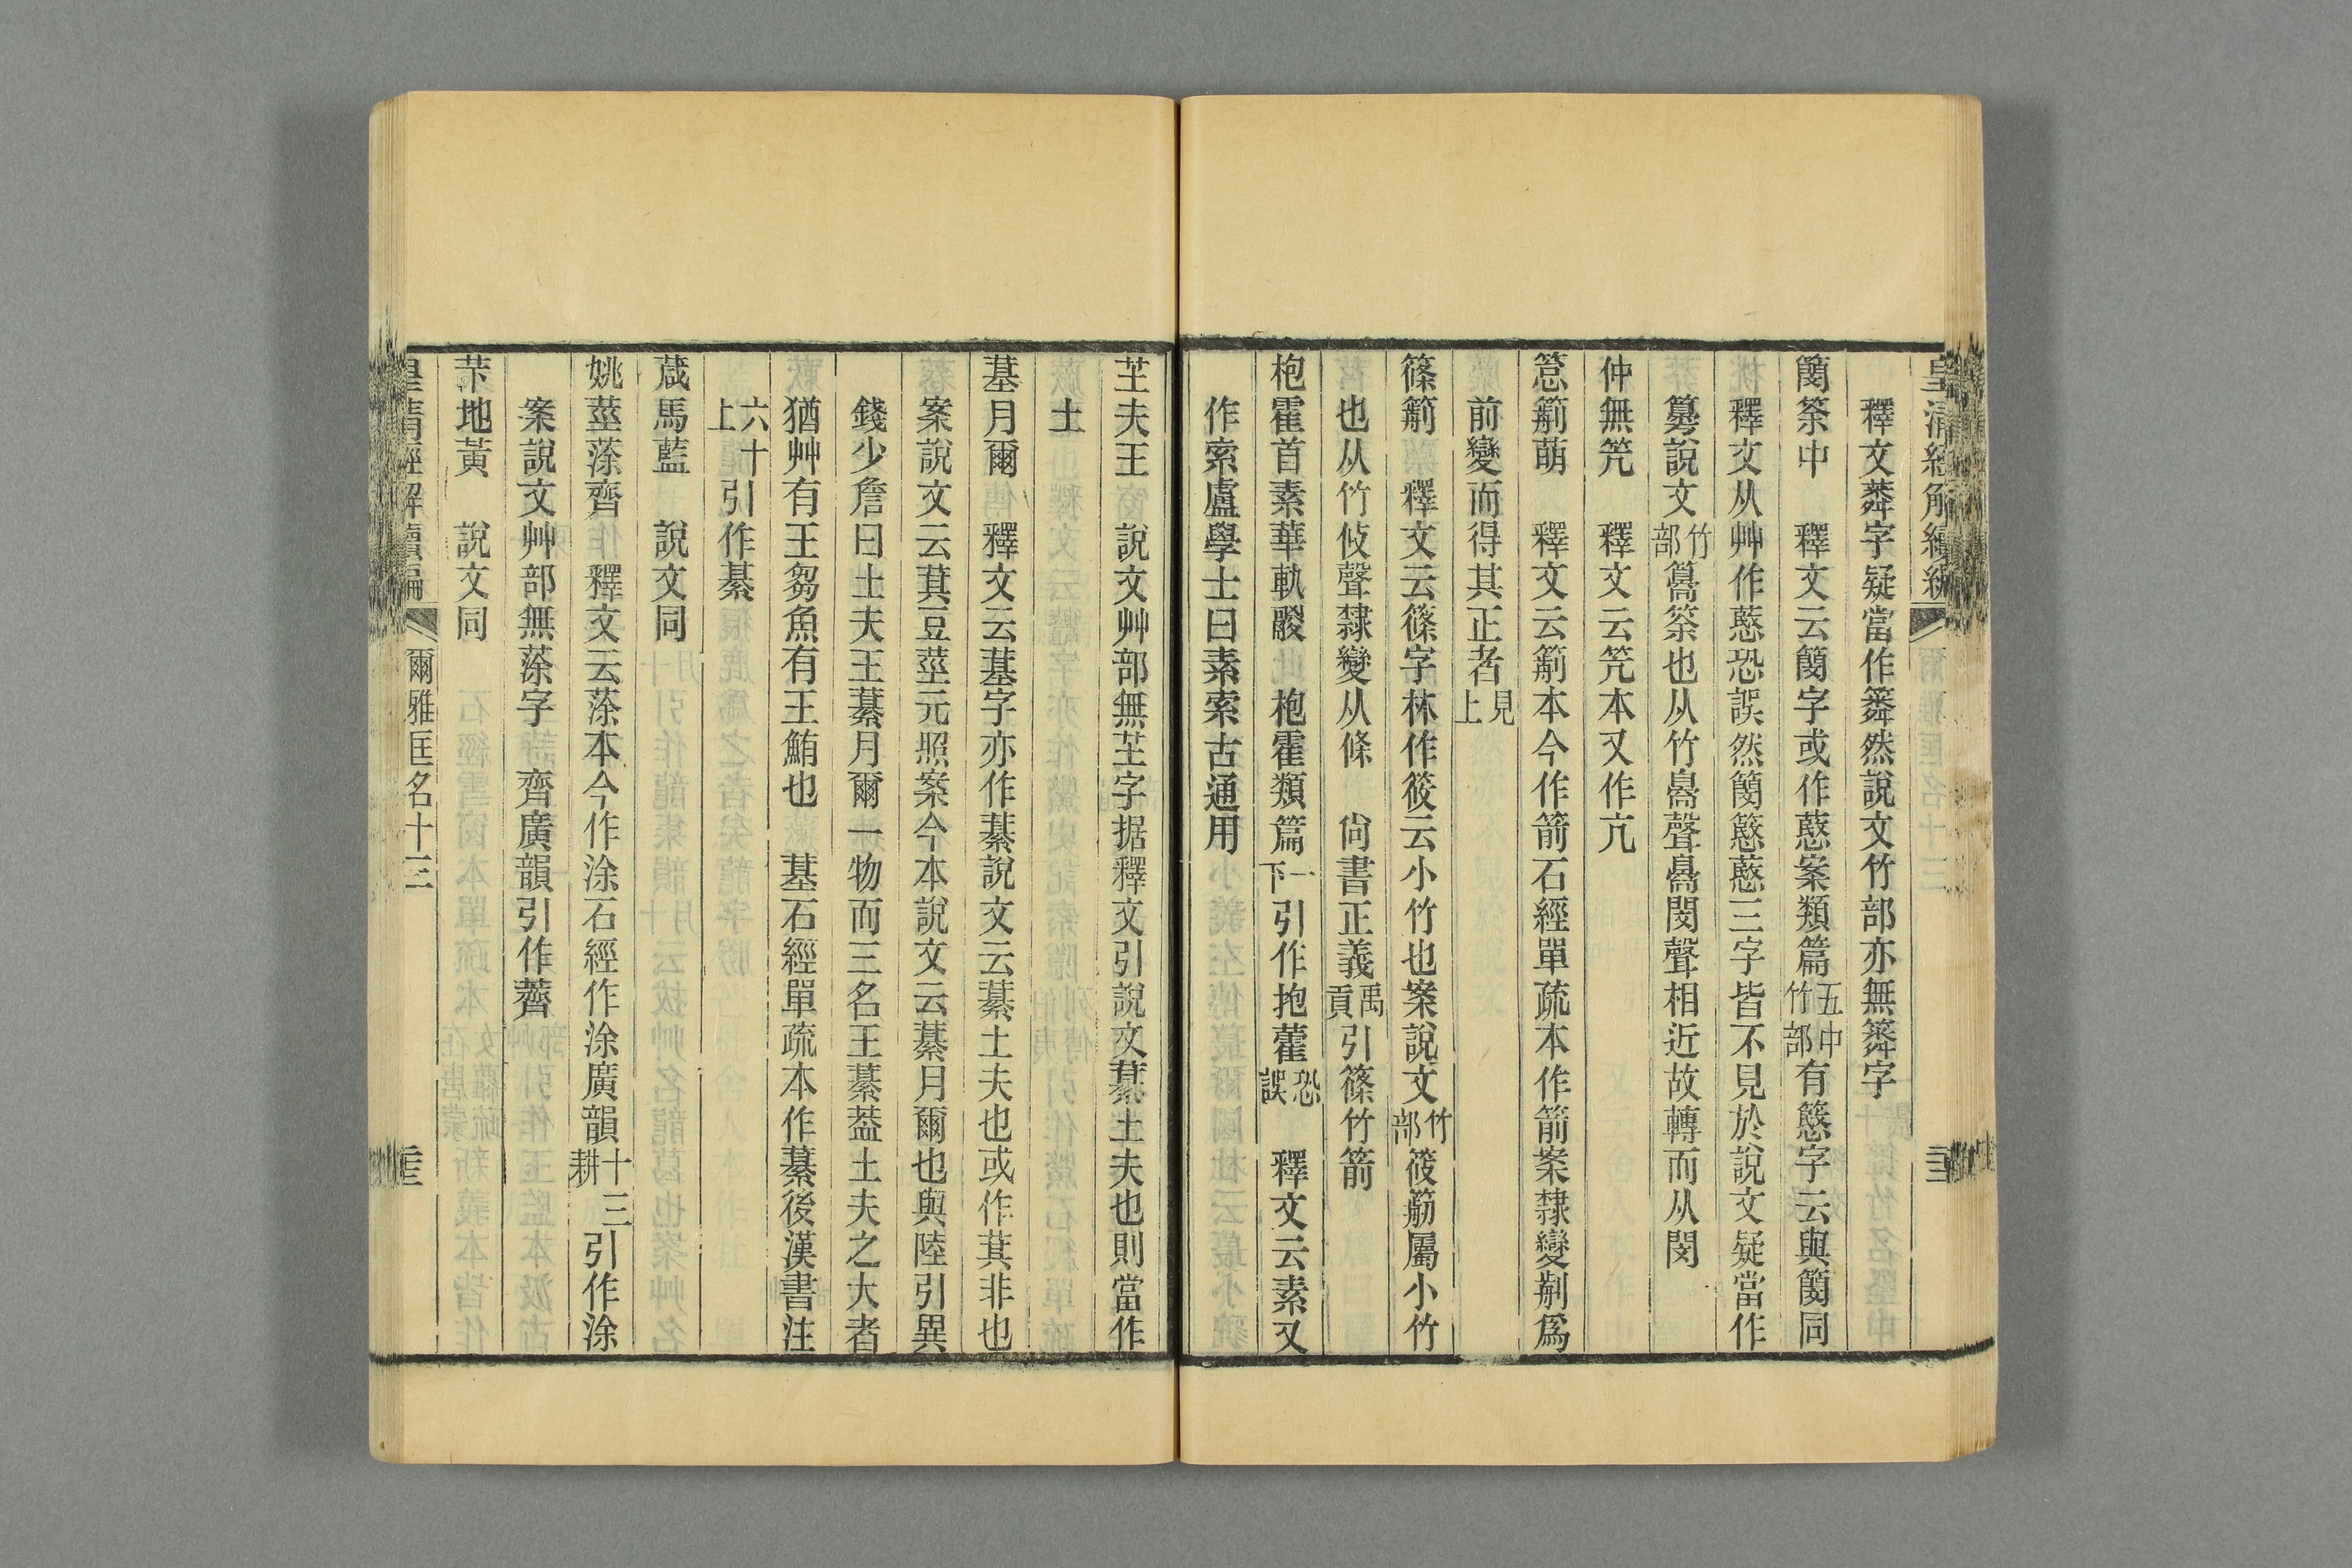 皇清經解續編
釋文粦字疑當作簩然說文竹部亦無簩字
簢筡中　釋文云簢字或作䓸案類篇五中竹部有簢字云與簢同
釋文从艸作䓸恐誤然簢䓸三字皆不見於說文疑當作
篹說文竹部筡也从竹聲閔聲相近故轉而从閔
仲無笐　釋文云笐本又作亢
箹萌　釋文云箹本今作箭石經單疏本作箭案隸變剏爲
前變而得其正者見上
篠箭　釋文云篠字林作筱云小竹也案說文竹部筱箭屬小竹
也从竹攸聲隸變从條　尙書正義禹貢引篠竹箭
枹霍首素華軌鬷　枹霍類篇一下引作抱藿恐誤　釋文云素又
作索盧學士曰素索古通用
芏夫王　說文艸部無芏字据釋文引說文綦土夫也則當作
土
綦月爾　釋文云綦字亦作綦說文云綦土夫也或作萁非也
案說文云萁豆莖元照案今本說文云綦月爾也與陸引異
錢少詹曰土夫王綦月爾一物而三名王綦葢土夫之大者
猶艸有王芻魚有王鮪也　綦石經單疏本作綦後漢書注
六十上引作綦
葴馬藍　說文同
姚莖蒤齊　釋文云蒤本今作涂石經作涂廣韻十三耕引作涂
案說文艸部無蒤字　齊廣韻引作薺
芐地黃　說文同
皇清經解續編　爾雅匡名十三　三